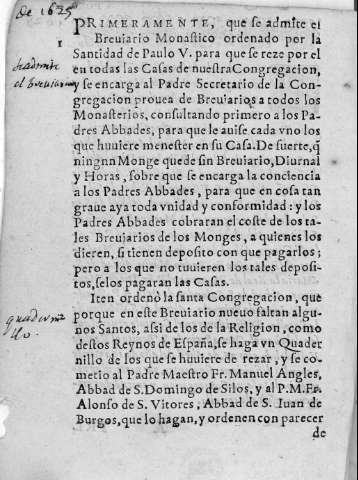 de 1625
PRIMERAMENTE, que se admite el
1
Breuiario Monastico ordenado por la
Santidad de Paulo V. para que se reze por el
se admite
en todas las Casas de nuestra Congregacion,
el breuiario
y se encarga al Padre Secretario de la Con-
gregacion prouea de Breuiarios a todos los
Monasterios, consultando primero a los Pa-
dres Abbades, para que le auise cada vno los
que huuiere menester en su Casa. De suerte, q̃
ningnn Monge quede sin Breuiario, Diurnal
y Horas, sobre que se encarga la conciencia
a los Padres Abbades, para que en cosa tan
graue aya toda vnidad y conformidad: y los
Padres Abbades cobraran el coste de los ta-
les Breuiarios de los Monges, a quienes los
dieren, si tienen deposito con que pagarlos;
pero a los que no tuuieren los tales deposi-
tos, selos pagaran las Casas.
Iten ordenò la santa Congregacion, que
porque en este Breuiario nueuo faltan algu-
quaderni
llo.
nos Santos, assi de los de la Religion, como
destos Reynos de España, se haga vn Quader
nillo de los que se huuiere de rezar, y se co-
metio al Padre Maestro Fr. Manuel Angles,
Abbad de S. Domingo de Silos, y al P. M. Fr.
Alonso de S. Vitores, Abbad de S. Iuan de
Burgos, que lo hagan, y ordenen con parecer
de